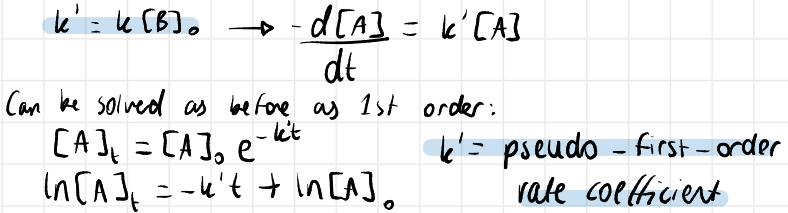 k' = k[B]₀ → -d[A]/dt = k'[A]
Can be solved as before as 1st order:
[A]ₜ = [A]₀ e^-k't
k' = pseudo-first-order
ln[A]ₜ = -k't + ln[A]₀
rate coefficient